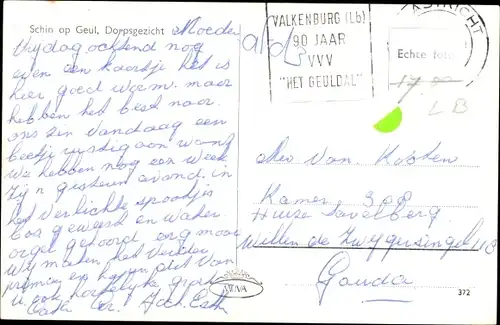 Schin op Geul, Dorpsgezicht Moeder
Vrijdag ochtend nog
even een kaartje het is
hier goed warm. maar
hebben het best naar
ons zin Vandaag een
beetje rustig aan want
we hebben nog een week
Zijn gisteren avond in
het Verlichte sprookjes
bos geweest en water
orgel gehoord erg mooi
Wij maken het Verder
prima en hopen dit van
U ook hartelijke
VALKENBURG (Lb)
90 JAAR
VVV
"HET GEULDAL"
Echte foto
17.
LB
Mev Van.
Kamer 308
Huize Savelberg
Willen de Zwijgersingel 118
Gouda
372